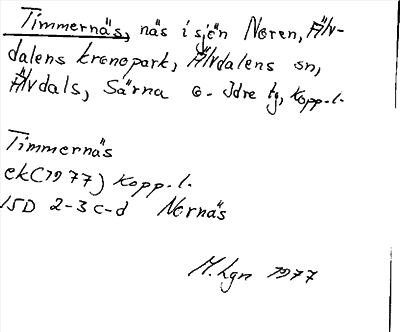 Timmernäs, näs i sjön Noren, Älv-
dalens kronopark, Älvdalens sn,
Älvdals, Särna o. Idre tg, Kopp. l.
Timmernäs
ek(1977) Kopp. l.
15D 2-3 c-d Nornäs
M. Lgn 1977